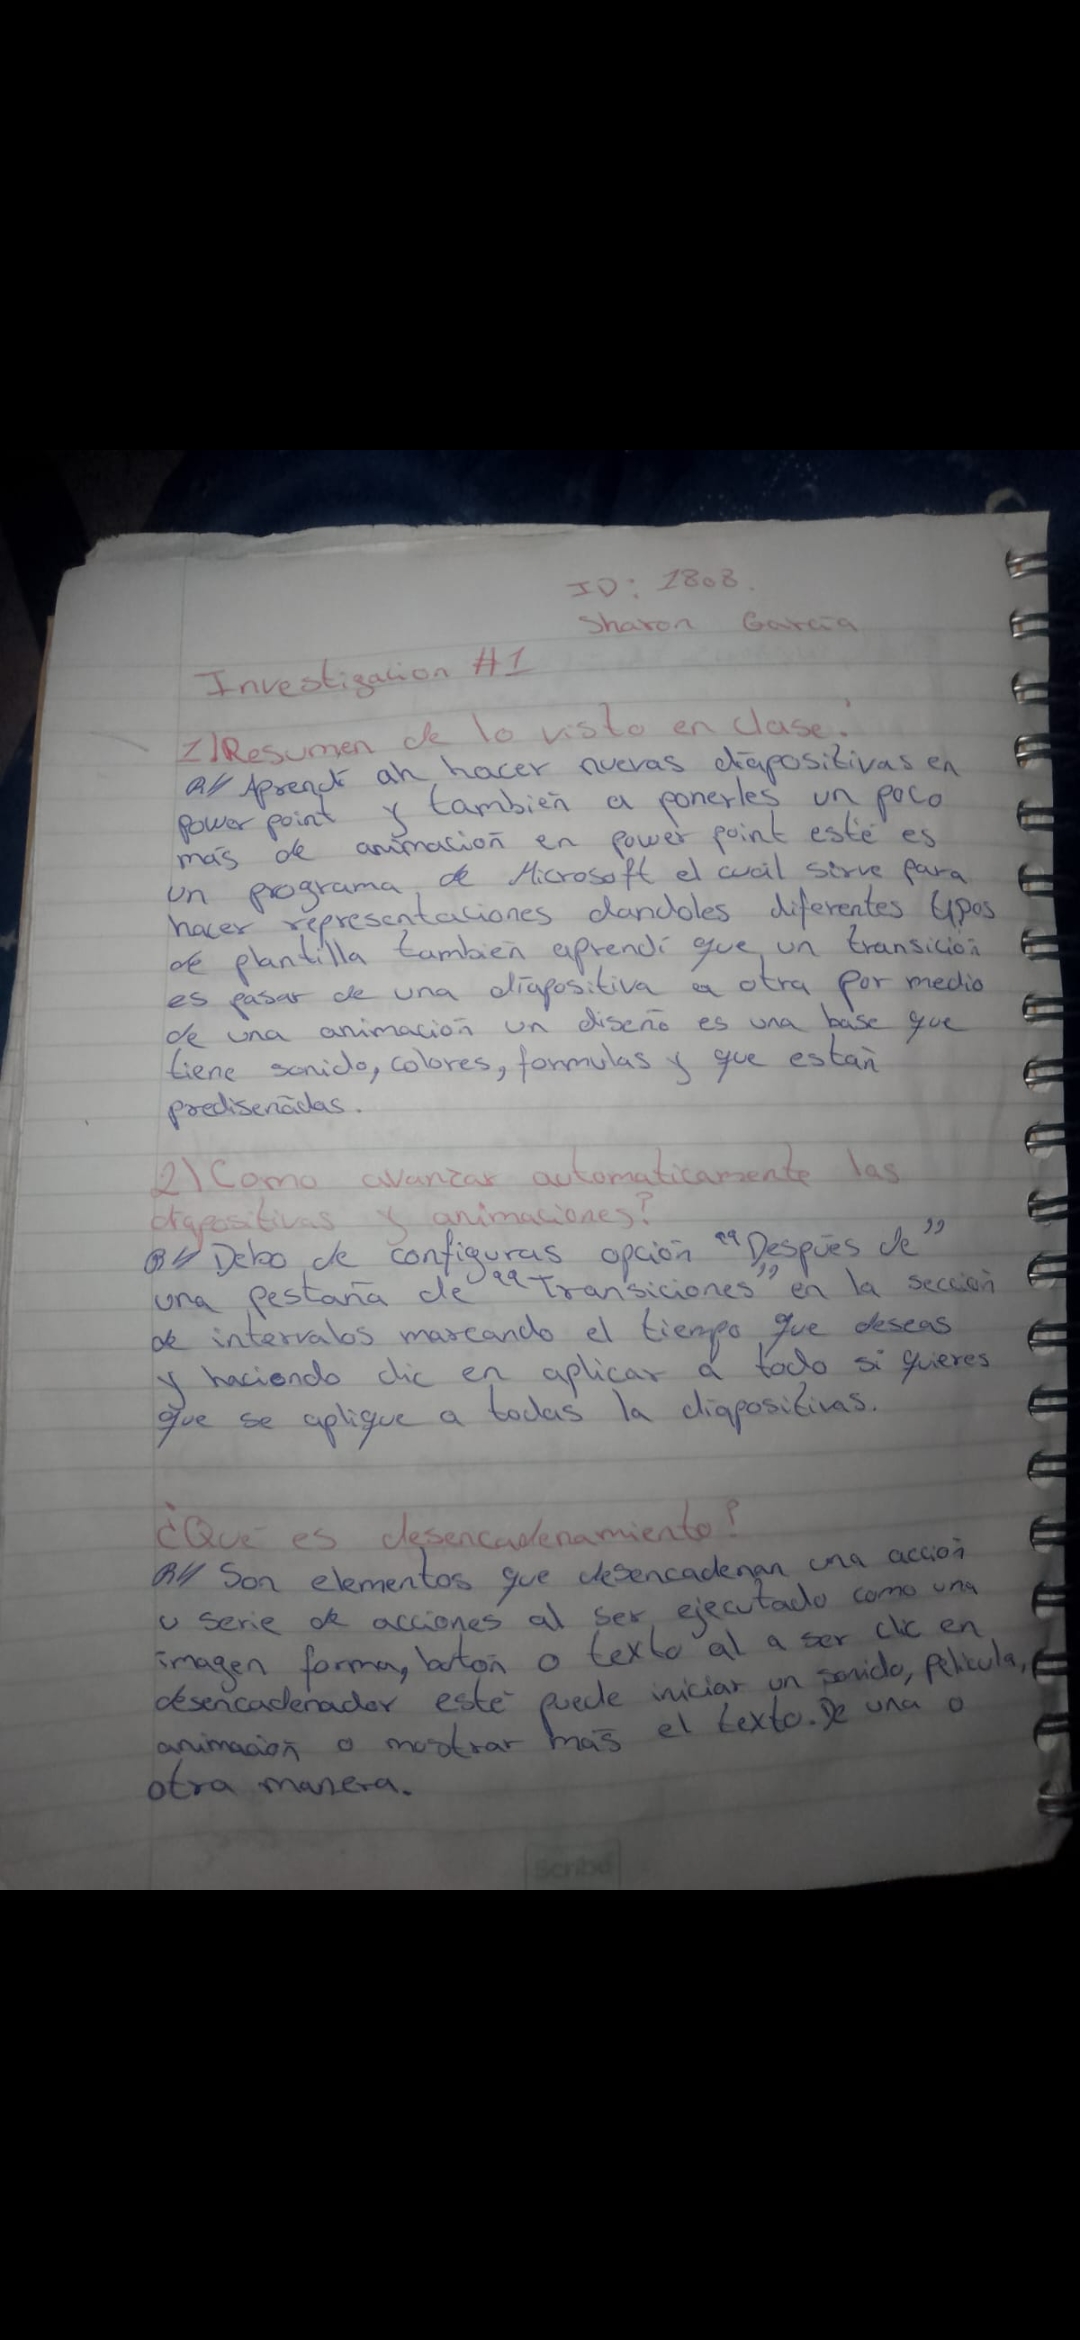 ID: 1808.
Sharon Garcia
Investigacion #1
1) Resumen de lo visto en clase.
R// Aprendí ah hacer nuevas diapositivas en
power point y también a ponerles un poco
más de animación en power point esté es
un programa de Microsoft el cual sirve para
hacer representaciones dandoles diferentes tipos
de plantilla también aprendí que un transición
es pasar de una diapositiva a otra por medio
de una animación un diseño es una base que
tiene sonido, colores, formulas y que están
prediseñádas.
2) Como avanzar automaticamente las
diapositivas y animaciones?
R// Debo de configuras opción "Después de"
una pestaña de "Transiciones" en la sección
de intervalos marcando el tiempo que deseas
y haciendo clic en aplicar a todo si quieres
que se aplique a todas la diapositivas.
¿Qué es desencadenamiento?
R// Son elementos que desencadenan una acción
u serie de acciones al ser ejecutado como una
imagen forma, botón o texto al a ser clic en
desencadenador esté puede iniciar un sonido, película,
animación o mostrar más el texto. De una o
otra manera.
Scribe